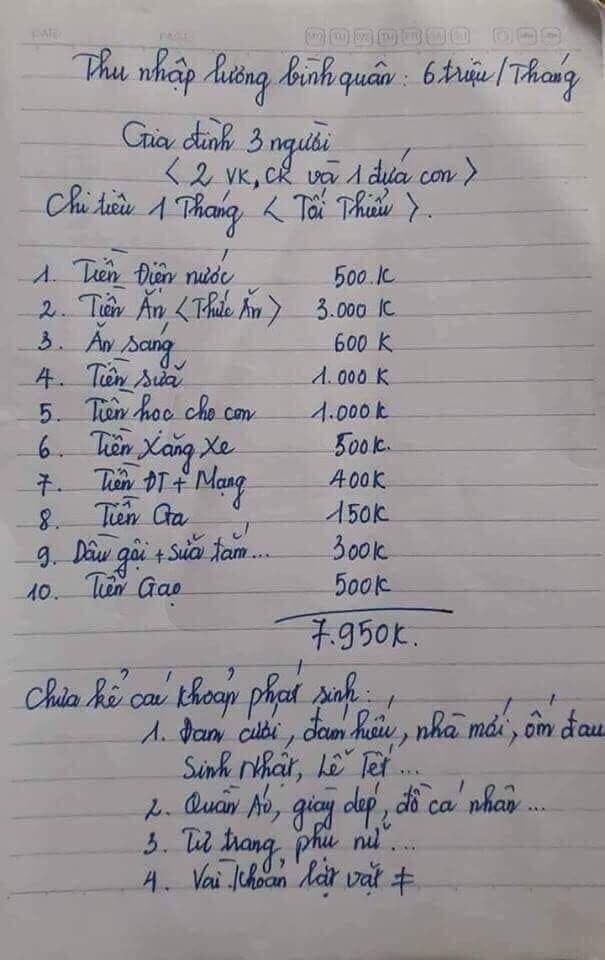 Thu nhập lương bình quân: 6 triệu/Tháng
Gia đình 3 người
< 2 VK, CK và 1 đứa con >
Chi tiêu 1 Tháng < Tối Thiểu >.
1. Tiền Điện nước 500.K
2. Tiền Ăn <Thức Ăn> 3.000 K
3. Ăn sáng 600 K
4. Tiền sữa 1.000 K
5. Tiền học cho con 1.000K
6. Tiền Xăng Xe 500K.
7. Tiền ĐT + Mạng 400K
8. Tiền Ga 150K
9. Dầu gội + sữa tắm... 300K
10. Tiền Gạo 500K
7.950K.
Chưa kể các khoản phát sinh:
1. Đám cưới, đám hiếu, nhà mới, ốm đau
Sinh Nhật, Lễ Tết...
2. Quần Áo, giày dép, đồ cá nhân...
3. Tư trang phụ nữ...
4. Vài khoản lặt vặt ≠